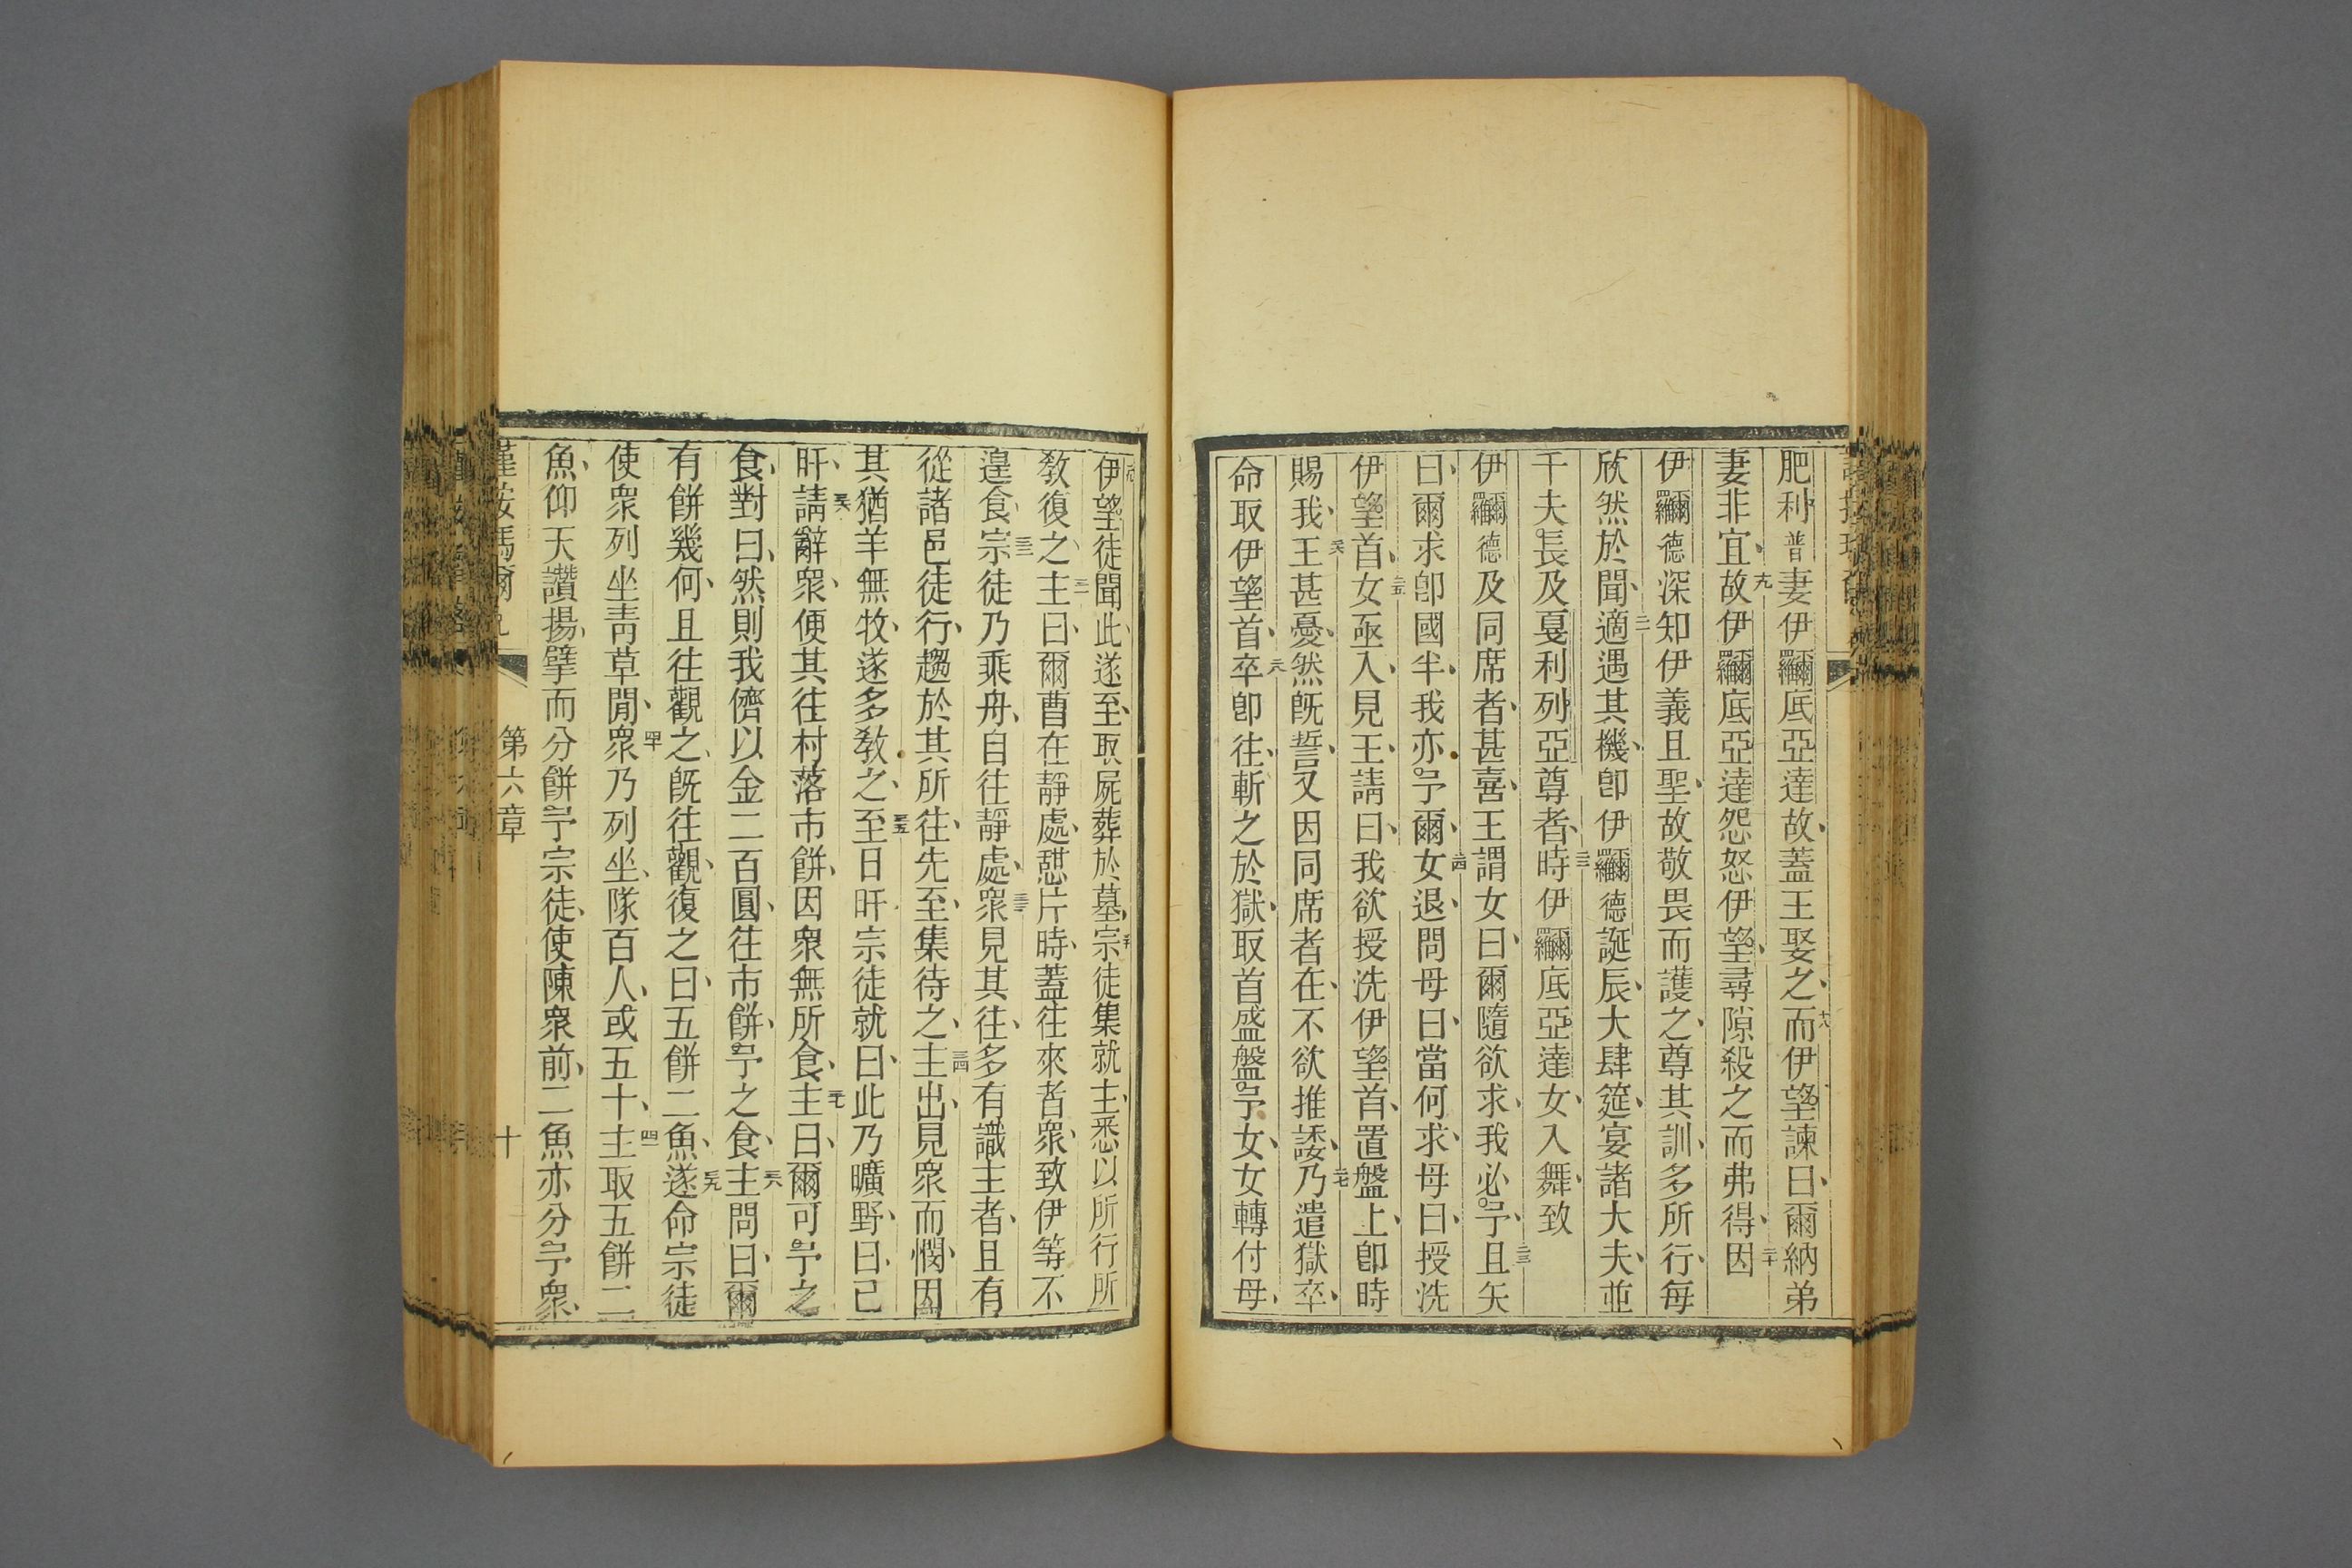 肥利普妻伊爾羅底亞達故、蓋王娶之、十八而伊望諫曰、爾納弟
妻非宜、十九故伊爾羅底亞達怨怒伊望、尋隙殺之而弗得、二十因
伊爾羅德深知伊義且聖、故敬畏而護之、尊其訓、多所行、每
欣然於聞、適遇其機、卽伊爾羅德誕辰、大肆筵、宴諸大夫、並
千夫長及戛利列亞尊者、時伊爾羅底亞達女、入舞、致
伊爾羅德及同席者、甚喜、王謂女曰、爾隨欲求、我必予、二三且矢
曰、爾求卽國半、我亦予爾、二四女退、問母曰、當何求、母曰、授洗
伊望首、二五女亟入、見王、請曰、我欲授洗伊望首、置盤上、卽時
賜我、二六王甚憂、然旣誓、又因同席者在、不欲推諉、二七乃遣獄卒、
命取伊望首、二八卒卽往、斬之於獄、取首盛盤予女、女轉付母、
伊望徒聞此、遂至、取屍葬於墓、三十宗徒集就主、悉以所行所
敎復之、三一主曰、爾曹在靜處、憇片時、蓋往來者衆、致伊等不
遑食、三二宗徒乃乘舟、自往靜處、三三衆見其往、多有識主者、且有
從諸邑徒行、趨於其所往、先至、集待之、三四主出、見衆而憫、因
其猶羊無牧、遂多敎之、三五至日旰、宗徒就曰、此乃曠野、日已
旰、三六請辭衆、便其往村落市餅、因衆無所食、三七主曰、爾可予之
食、對曰、然則我儕以金二百圓、往市餅、予之食、三八主問曰、爾
有餅幾何、且往觀之、旣往觀、復之曰、五餅二魚、三九遂命宗徒
使衆列坐靑草閒、四十衆乃列坐、隊百人、或五十、四一主取五餅二
魚、仰天讚揚、擘而分餅予宗徒、使陳衆前、二魚亦分予衆、
第六章
十